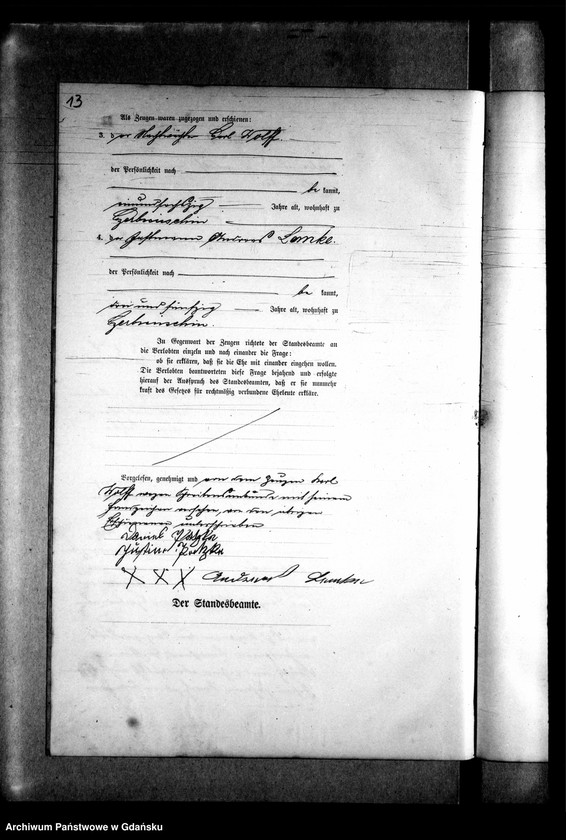 13
Als Zeugen waren zugezogen und erschienen:
3. der Nachtwächter Carl Wolff.
der Persönlichkeit nach
be kannt,
Jahre alt, wohnhaft zu
4. der Andreas Lemke.
der Persönlichkeit nach
be kannt,
drei und fünfzig Jahre alt, wohnhaft zu
In Gegenwart der Zeugen richtete der Standesbeamte an
die Verlobten einzeln und nach einander die Frage:
ob sie erklären, daß sie die Ehe mit einander eingehen wollen.
Die Verlobten beantworteten diese Frage bejahend und erfolgte
hierauf der Ausspruch des Standesbeamten, daß er sie nunmehr
kraft des Gesetzes für rechtmäßig verbundene Eheleute erkläre.
Vorgelesen, genehmigt und von dem Zeugen Carl
Wolff wegen Schreibensunkunde mit seinem
Handzeichen versehen, von den übrigen
Erschienenen unterschrieben
XXX Andreas Lemke
Der Standesbeamte.
Archiwum Państwowe w Gdańsku